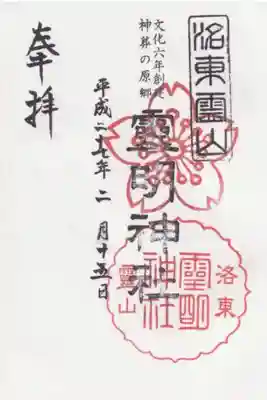 洛東霊山
文化六年創建
神葬の原郷
霊明神社
平成二十七年二月十五日
奉拝
洛東
霊明神社
霊山